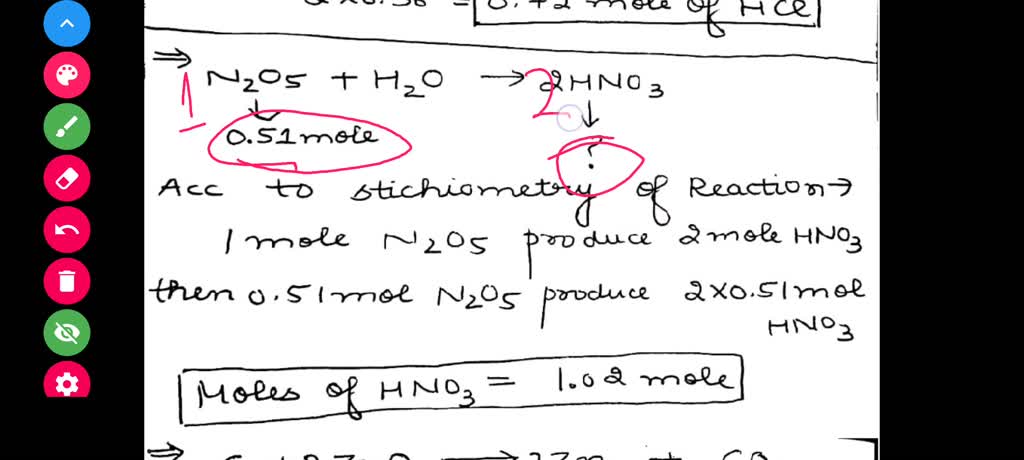 2×0.36 = 0.72 mole of HCl
⇒
1 N2O5 + H2O → 2 2HNO3
↓ ↓
0.51 mole ?
Acc to stichiometry of Reaction→
1 mole N2O5 produce 2 mole HNO3
then 0.51 mol N2O5 produce 2×0.51 mol
HNO3
Moles of HNO3 = 1.02 mole
⇒